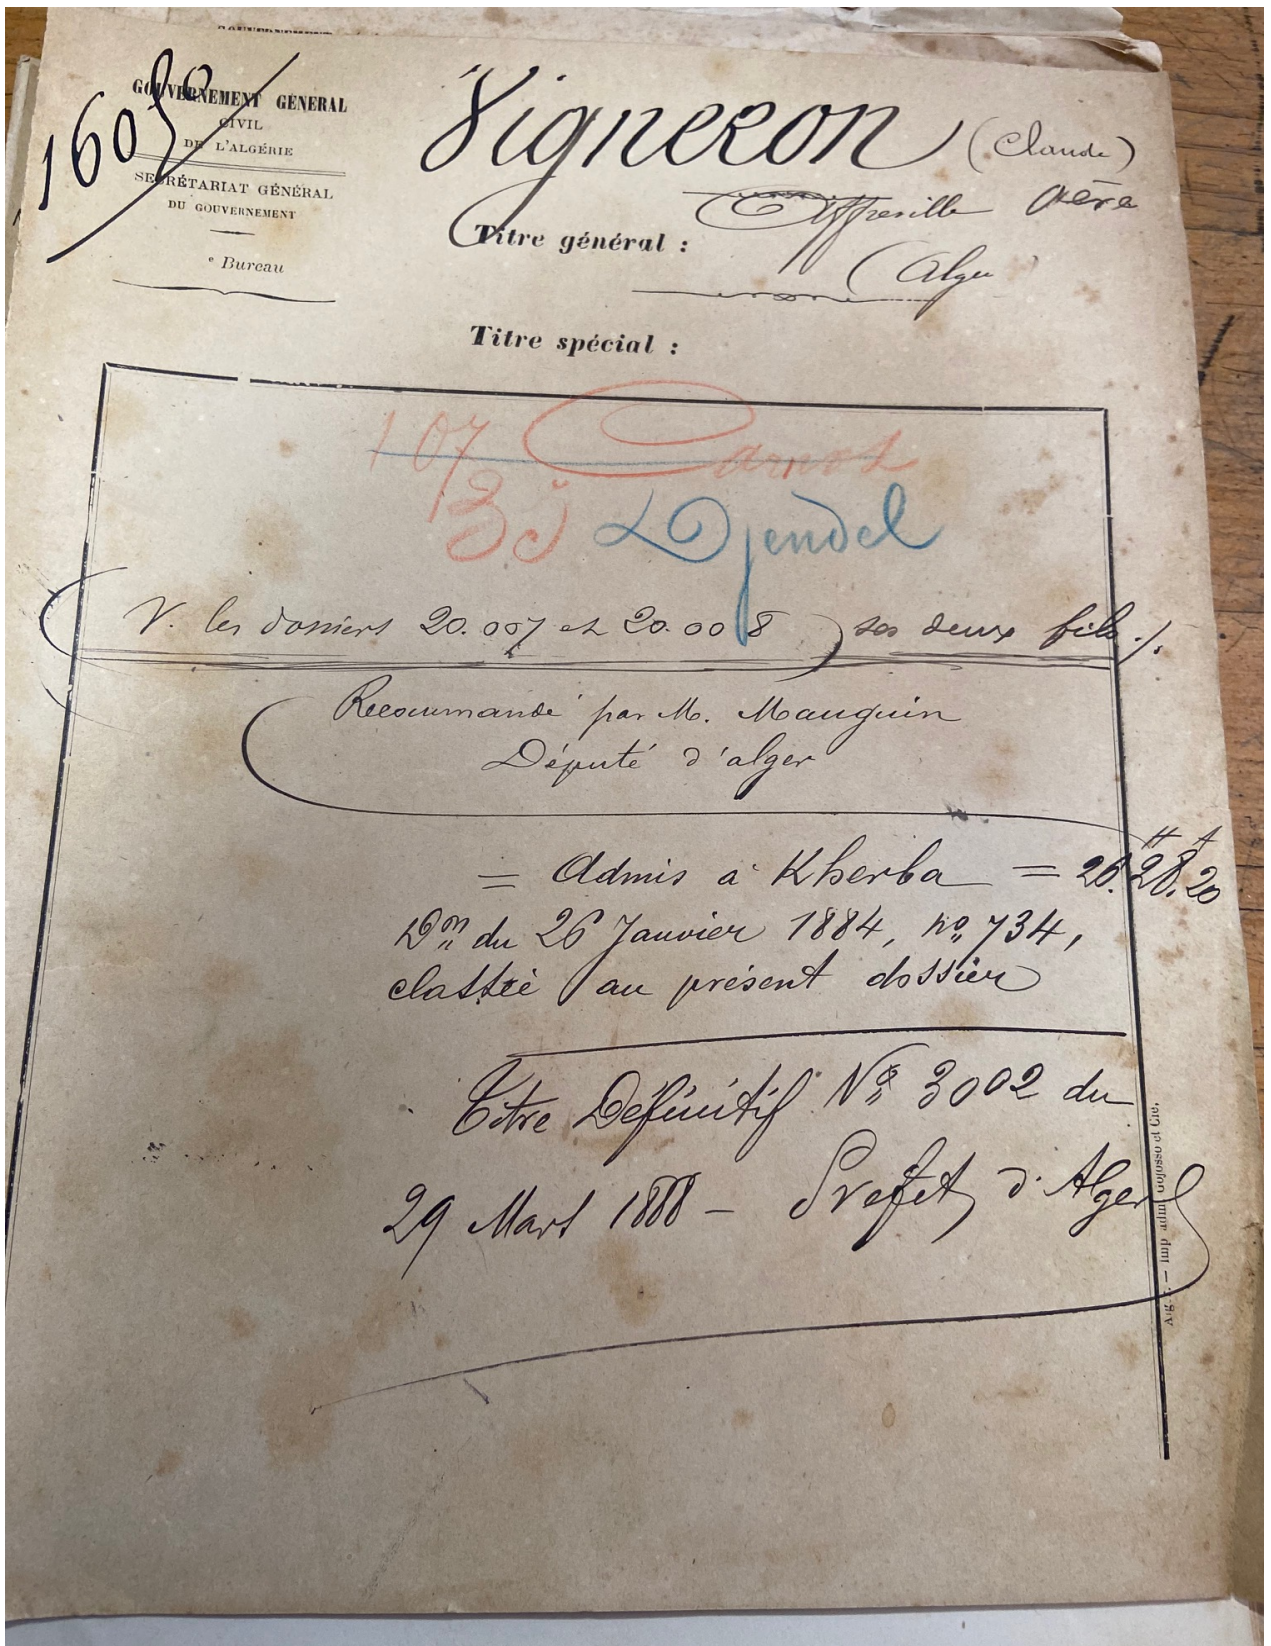 GOUVERNEMENT GÉNÉRAL
CIVIL
DE L'ALGÉRIE
SECRÉTARIAT GÉNÉRAL
DU GOUVERNEMENT
e Bureau
Vigneron (Claude)
père
Affreville
Titre général :
(Alger
Titre spécial :
107 Carnot
35 Djendel
V. les dossiers 20.007 et 20.008 ses deux fils ./.
Recommandé par M. Mauguin
Député d'alger
= Admis à Kherba = 26.28.20
Don du 26 Janvier 1884, no 734,
classée au présent dossier
Titre Définitif No 3002 du
29 Mars 1888 - Préfet d'Alger
Imp. adm. Gojosso et Cie.